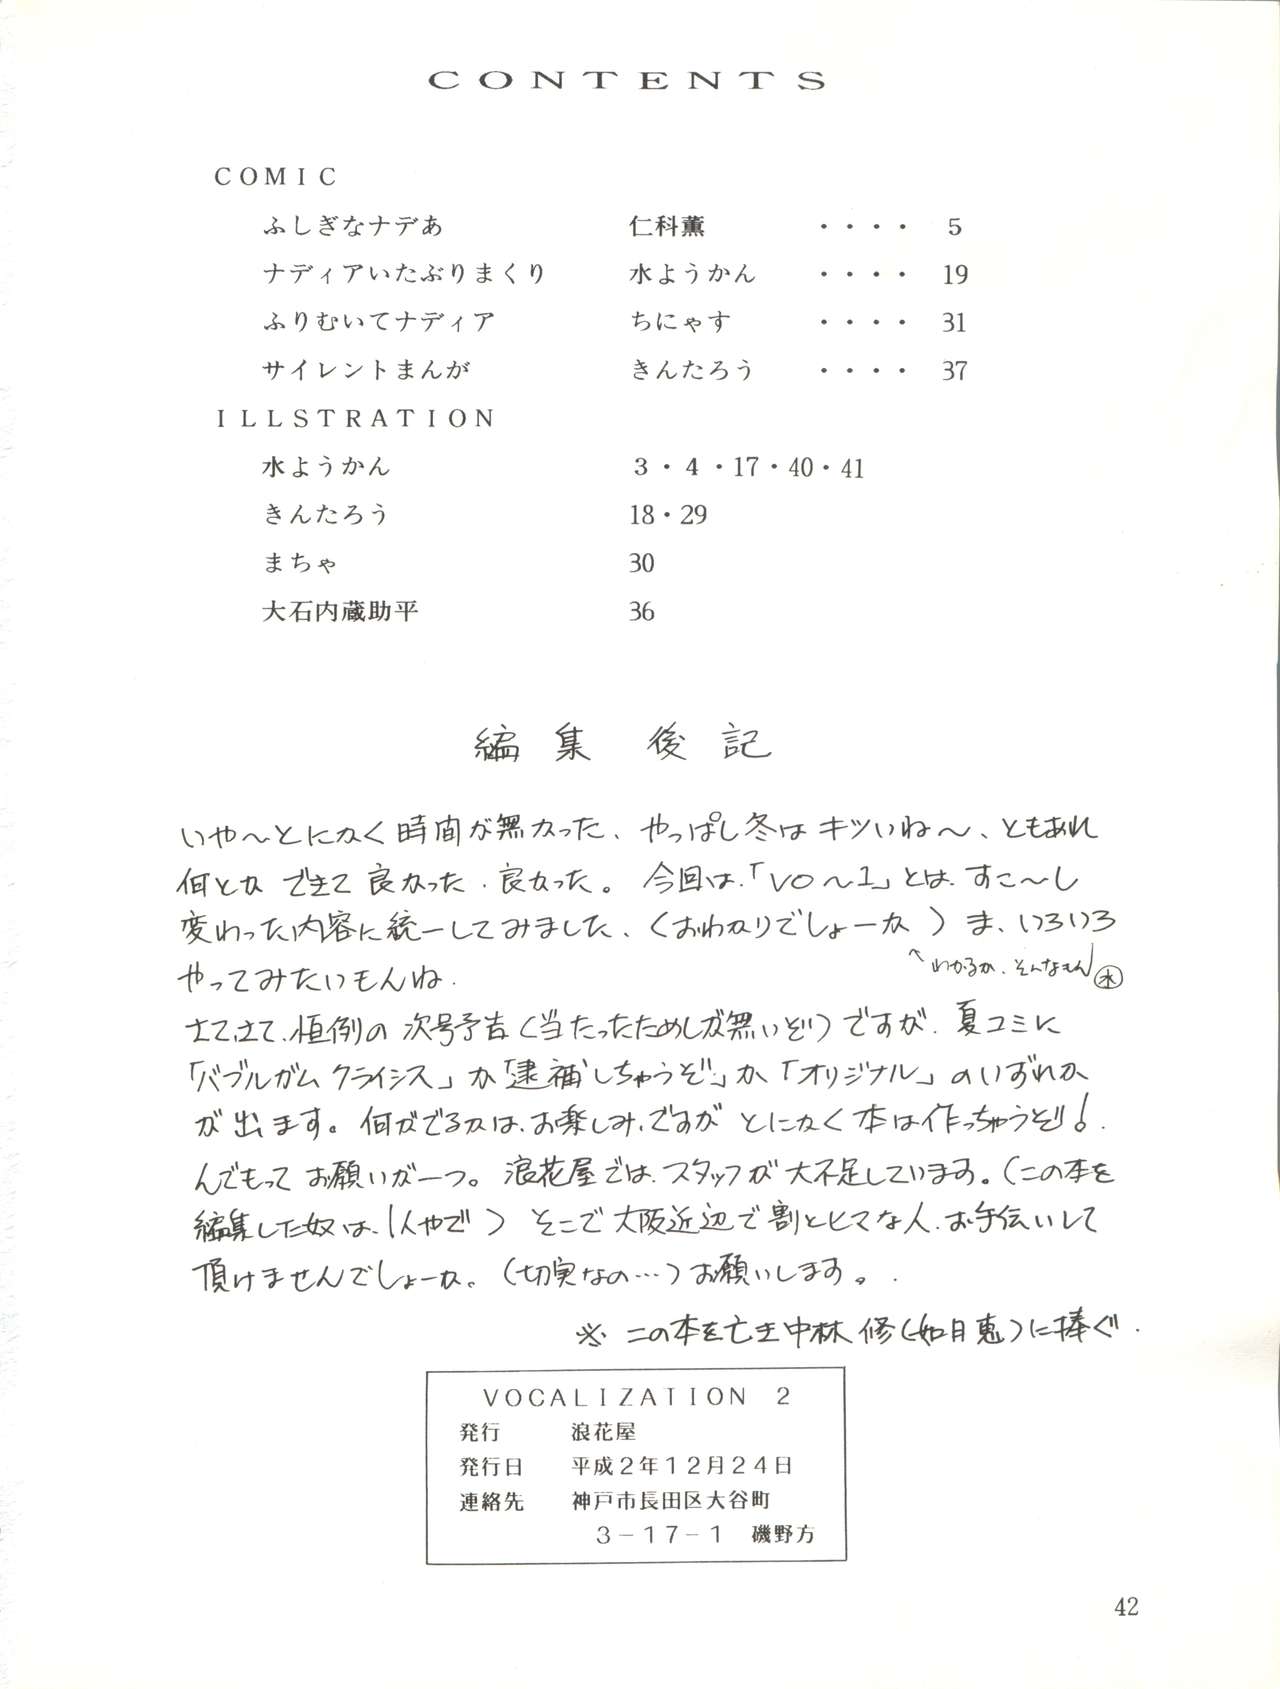 CONTENTS
COMIC
ふしぎなナデあ 仁科薫 ・・・・ 5
ナディアいたぶりまくり 水ようかん ・・・・ 19
ふりむいてナディア ちにゃす ・・・・ 31
サイレントまんが きんたろう ・・・・ 37
ILLSTRATION
水ようかん 3・4・17・40・41
きんたろう 18・29
まちゃ 30
大石内蔵助平 36
編集後記
いや〜とにかく時間が無かった、やっぱし冬はキツいね〜、ともあれ
何とか できて 良かった、良かった。 今回は、「VO〜1」とは、すこ〜し
変わった内容に統一してみました、(おわかりでしょーか) ま、いろいろ
↑わかるか、そんなもん 水
やってみたいもんね、
さてさて、恒例の 次号予告(当たったためしが無いぞ!)ですが、夏コミに
「バブルガム クライシス」か「逮捕しちゃうぞ」か「オリジナル」のいずれか
が出ます。何がでるかは、お楽しみ、ですが とにかく本は作っちゃうぞ!
んでもって お願いが一つ。浪花屋では、スタッフが大不足しています。(この本を
編集した奴は、1人やで) そこで大阪近辺で割とヒマな人、お手伝いして
頂けませんでしょーか。(切実なの…)お願いします。
※ この本を亡き中林 修(如月 恵)に捧ぐ、
VOCALIZATION 2
発行 浪花屋
発行日 平成2年12月24日
連絡先 神戸市長田区大谷町
3-17-1 磯野方
42